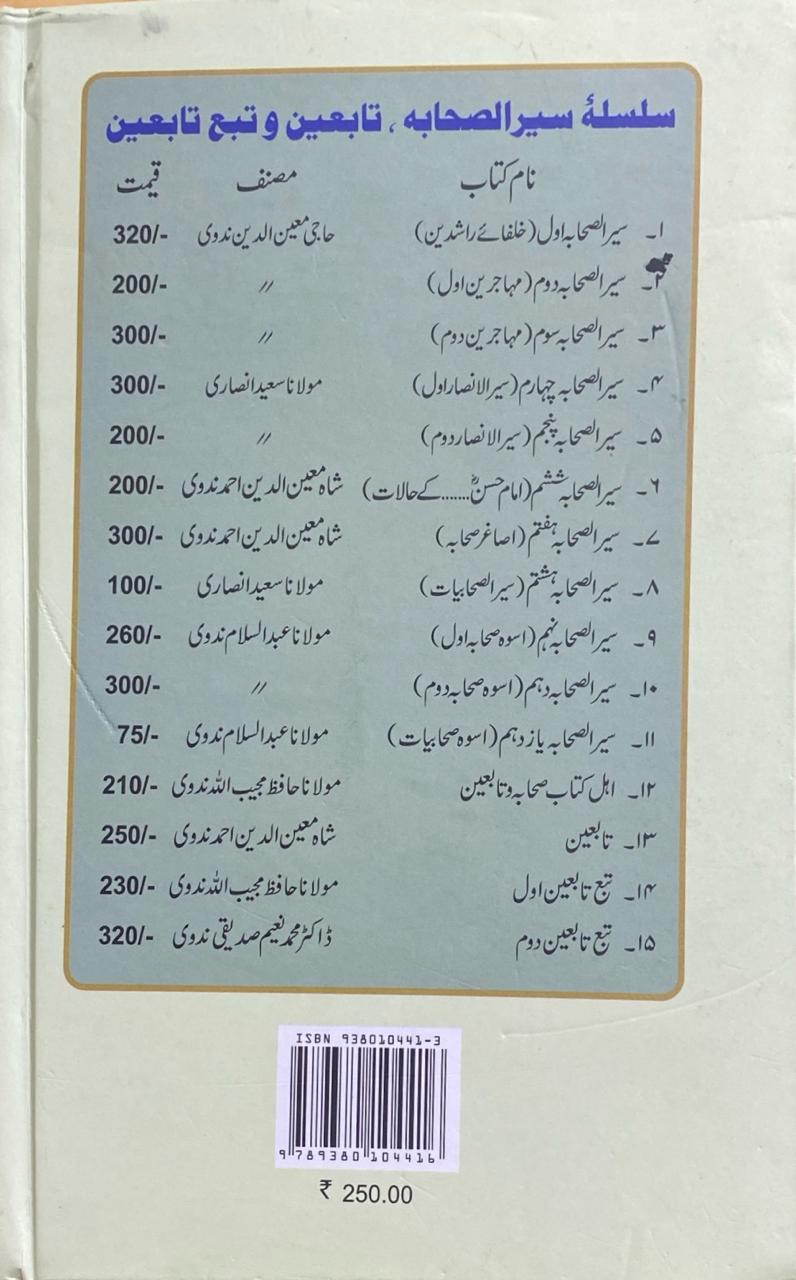 سلسلۂ سیر الصحابہ، تابعین و تبع تابعین
نام کتاب مصنف قیمت
۱۔ سیر الصحابہ اول (خلفائے راشدین) حاجی معین الدین ندوی 320/-
۲۔ سیر الصحابہ دوم (مہاجرین اول) // 200/-
۳۔ سیر الصحابہ سوم (مہاجرین دوم) // 300/-
۴۔ سیر الصحابہ چہارم (سیر الانصار اول) مولانا سعید انصاری 300/-
۵۔ سیر الصحابہ پنجم (سیر الانصار دوم) // 200/-
۶۔ سیر الصحابہ ششم (امام حسنؓ.......کے حالات) شاہ معین الدین احمد ندوی 200/-
۷۔ سیر الصحابہ ہفتم (اصاغر صحابہ) شاہ معین الدین احمد ندوی 300/-
۸۔ سیر الصحابہ ہشتم (سیر الصحابیات) مولانا سعید انصاری 100/-
۹۔ سیر الصحابہ نہم (اسوہ صحابہ اول) مولانا عبدالسلام ندوی 260/-
۱۰۔ سیر الصحابہ دہم (اسوہ صحابہ دوم) // 300/-
۱۱۔ سیر الصحابہ یازدہم (اسوہ صحابیات) مولانا عبدالسلام ندوی 75/-
۱۲۔ اہل کتاب صحابہ و تابعین مولانا حافظ مجیب اللہ ندوی 210/-
۱۳۔ تابعین شاہ معین الدین احمد ندوی 250/-
۱۴۔ تبع تابعین اول مولانا حافظ مجیب اللہ ندوی 230/-
۱۵۔ تبع تابعین دوم ڈاکٹر محمد نعیم صدیقی ندوی 320/-
ISBN 938010441-3
9 789380 104416
₹ 250.00